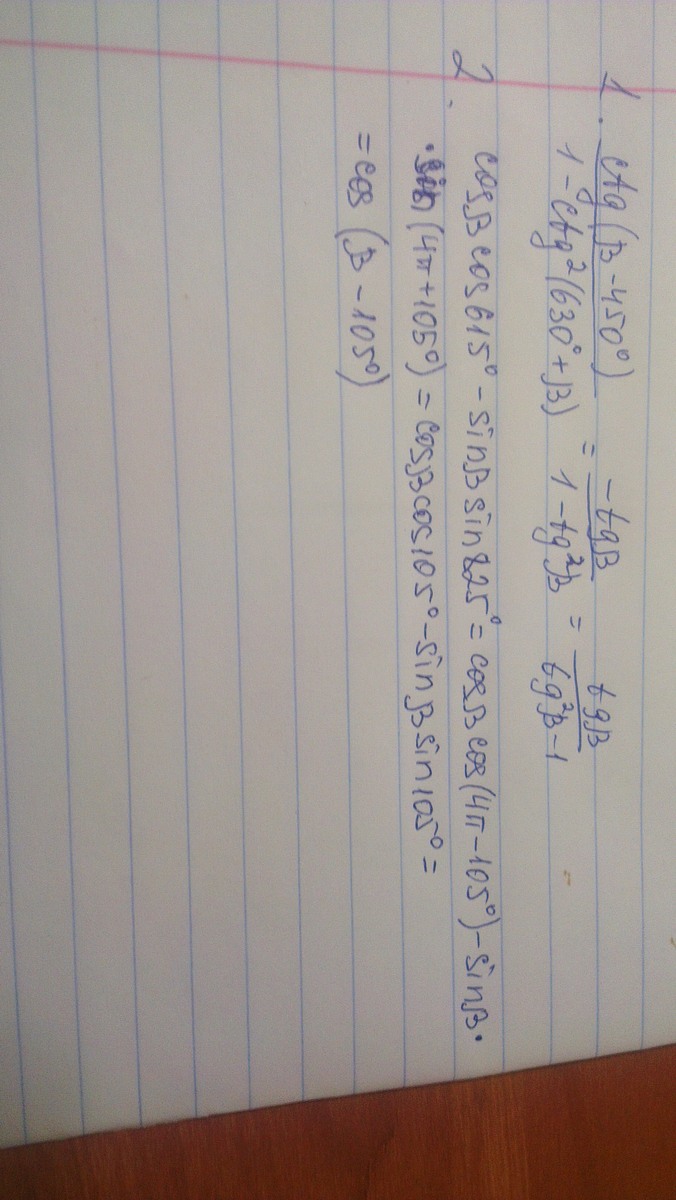 1. ctg(β-450°) / 1-ctg²(630°+β) = -tgβ / 1-tg²β = tgβ / tg²β-1
2. cosβ cos 615° - sinβ sin 825° = cosβ cos(4π-105°) - sinβ·
·sin(4π+105°) = cosβ cos 105° - sinβ sin 105° =
= cos(β-105°)